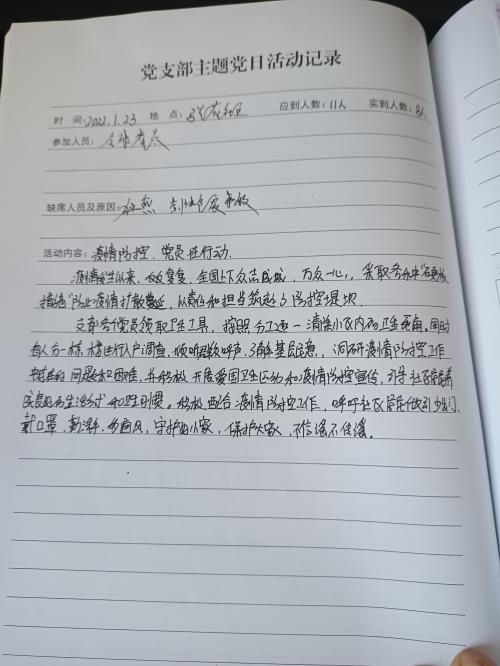 党支部主题党日活动记录
时 间：2022.1.23 地 点： 应到人数：11人 实到人数：8人
参加人员：全体党员
缺席人员及原因：
活动内容：疫情防控，党员在行动.
疫情发生以来，反反复复，全国上下众志成城，万众一心，采取各种
措施 防止疫情扩散蔓延，以责任和担当筑起了防控堤坝.
支部各党员领取卫生工具，按照分工逐一清除小区内的卫生死角。同时
每人一栋楼进行入户调查，倾听群众呼声，了解基层民意，洞研疫情防控工作
存在的问题和困难，并积极开展爱国卫生运动和疫情防控宣传，引导社区居民养
良好的生活方式和卫生习惯。积极配合疫情防控工作，呼吁社区居民做到少出门
戴口罩，勤洗手，多通风，守护小家，保护大家，不信谣不传谣。